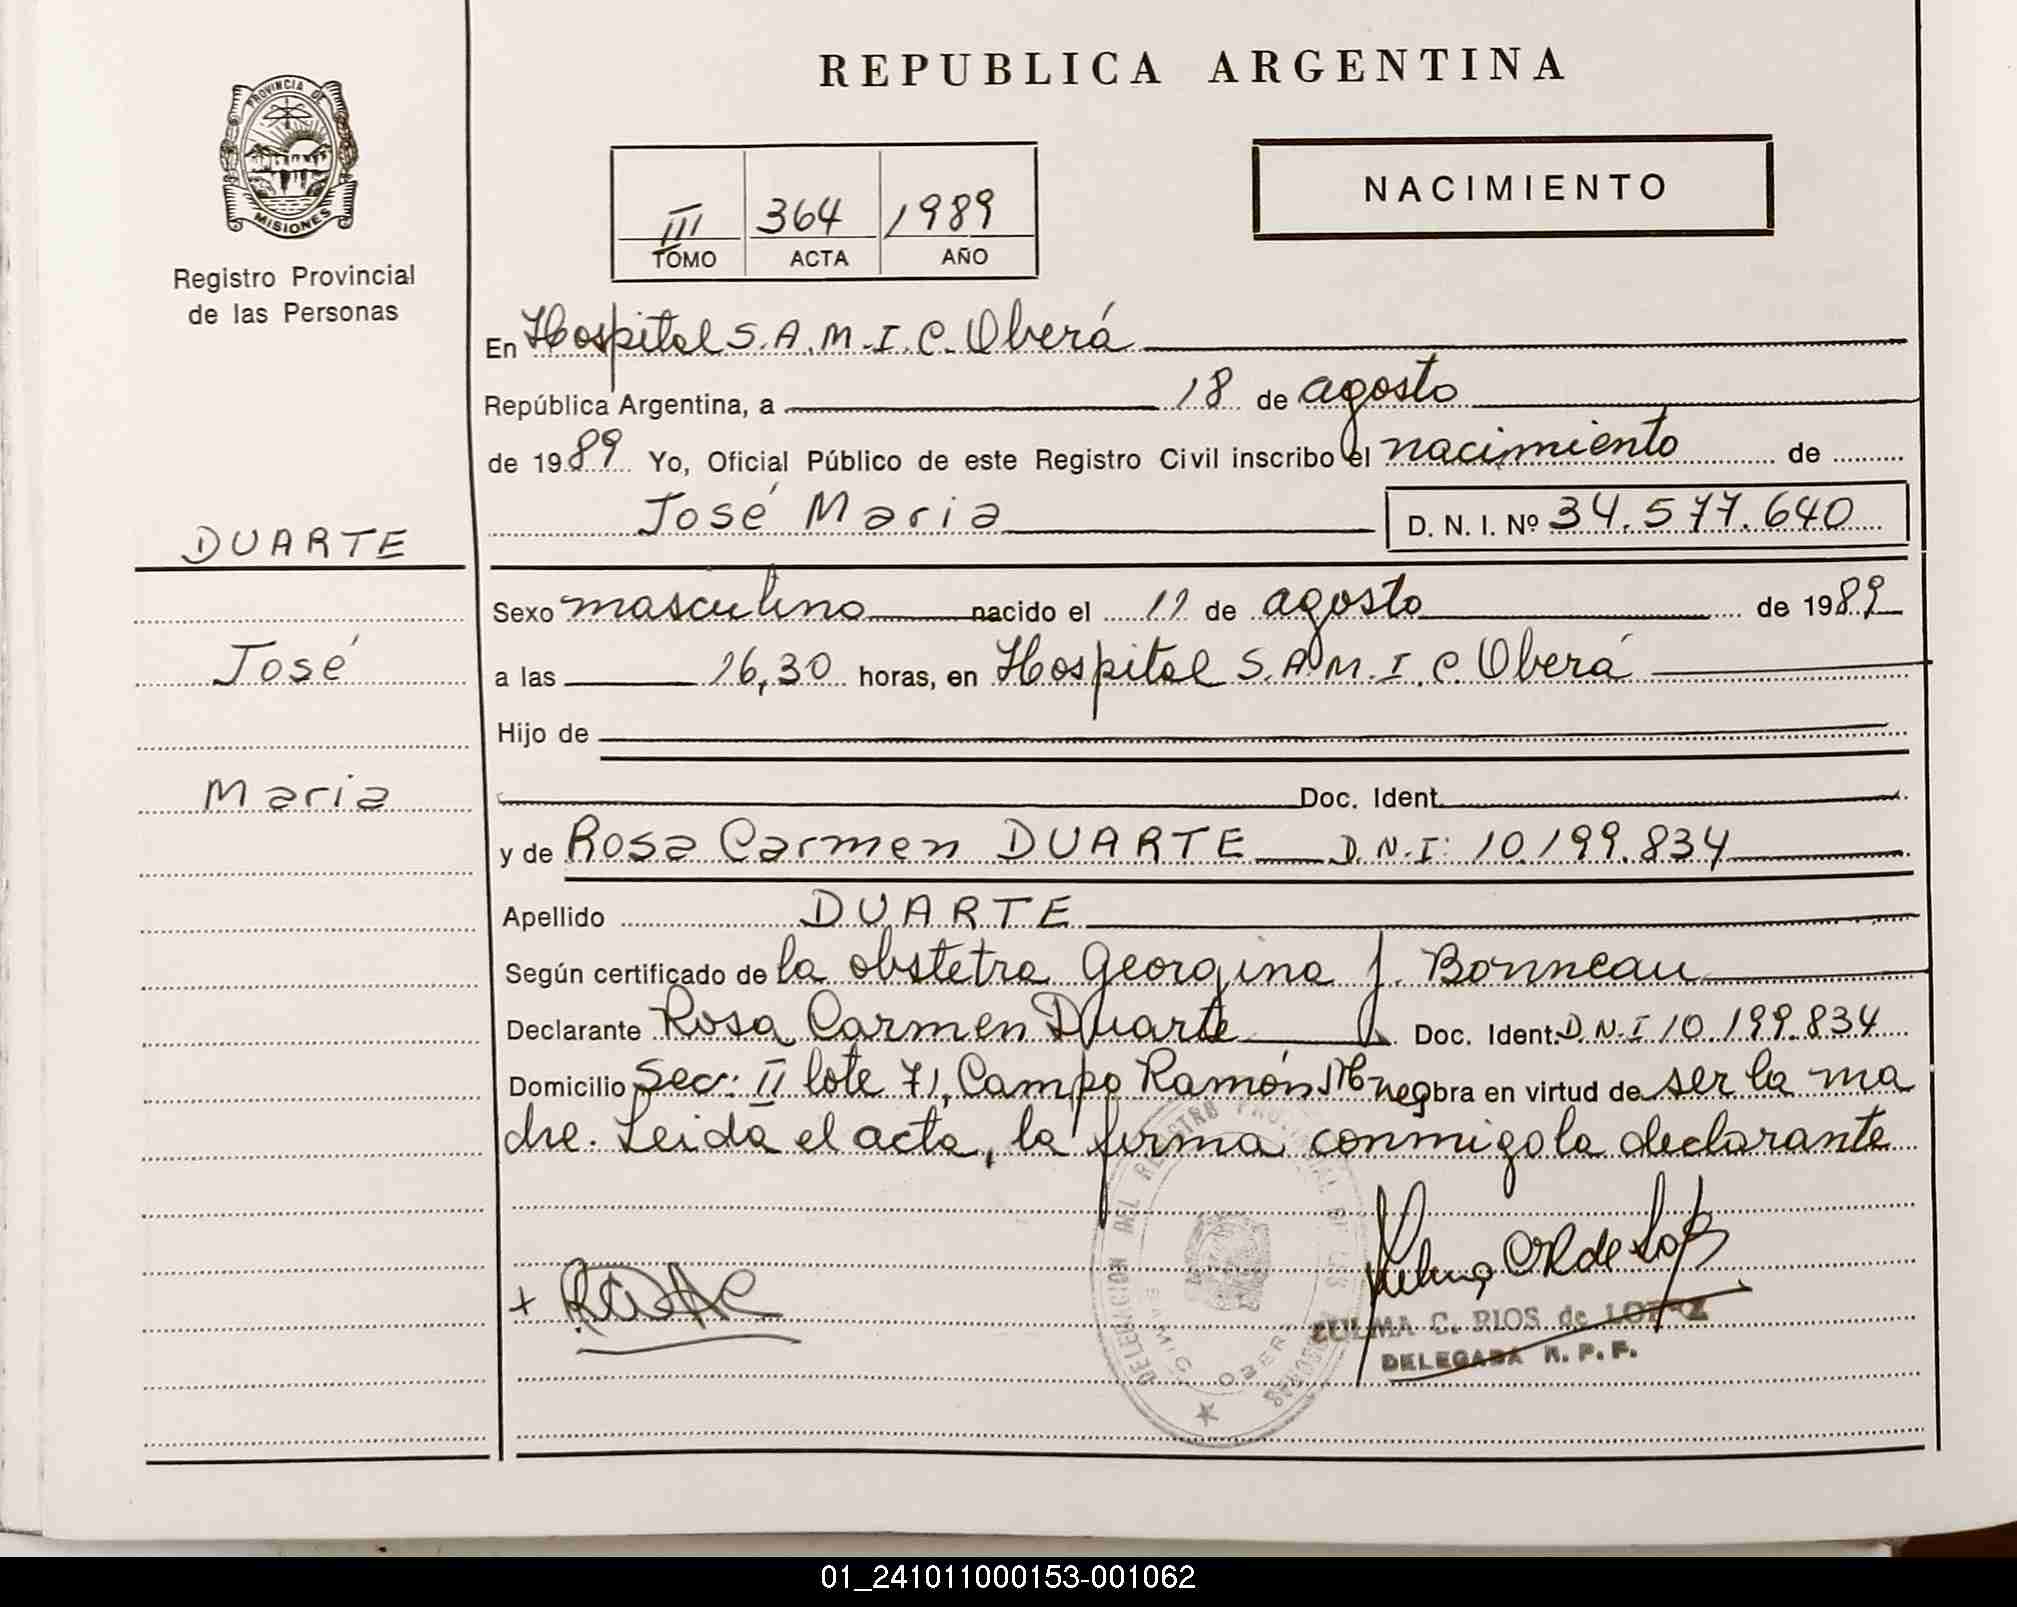 REPUBLICA ARGENTINA
PROVINCIA DE
MISIONES
Registro Provincial
de las Personas
III 364 1989
TOMO ACTA AÑO
NACIMIENTO
En Hospital S.A.M.I.C. Oberá
República Argentina, a 18 de agosto
de 1989 Yo, Oficial Público de este Registro Civil inscribo el nacimiento de
José Maria D. N. I. Nº 34.577.640
DUARTE
José
Maria
Sexo masculino nacido el 11 de agosto de 1989
a las 16,30 horas, en Hospital S.A.M.I.C. Oberá
Hijo de
Doc. Ident.
y de Rosa Carmen DUARTE D.N.I: 10.199.834
Apellido DUARTE
Según certificado de la obstetra Georgina J. Bonneau
Declarante Rosa Carmen Duarte Doc. Ident. D.N.I 10.199.834
Domicilio Sec: II lote 71, Campo Ramón Mnes obra en virtud de ser la ma
dre. Leida el acta, la firma conmigo la declarante
DELEGACION DEL REGISTRO PROVINCIAL DE LAS PERSONAS
SAMIC OBERA
+
ZULMA C. RIOS de LOPEZ
DELEGADA R. P. P.
01_241011000153-001062